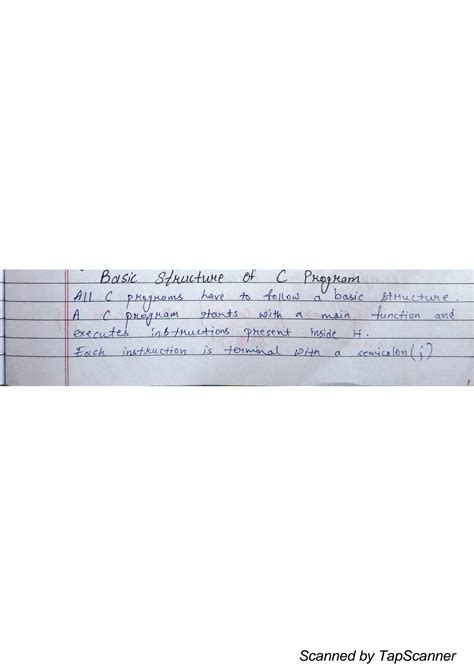 Basic Structure of C Program
All C programs have to follow a basic structure.
A C program starts with a main function and
executes instructions present inside it.
Each instruction is terminal with a semicolon(;)
Scanned by TapScanner